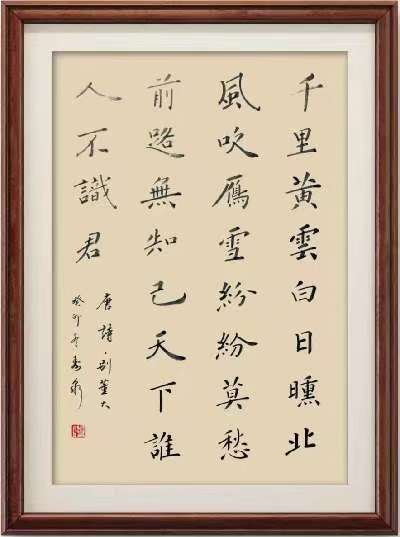 千里黄雲白日曛北
風吹鴈雪紛紛莫愁
前路無知己天下誰
人不識君
唐詩·别董大
癸卯冬